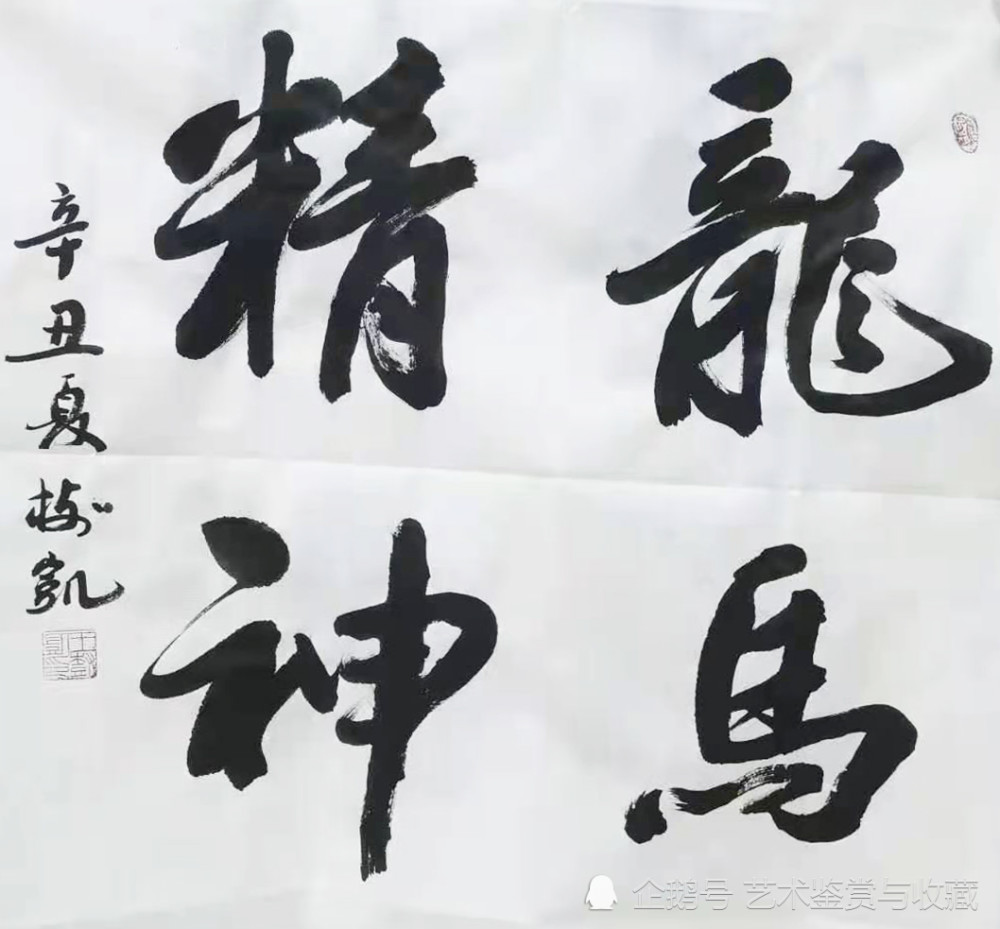 龍馬
精神
辛丑夏 樹凱
企鹅号 艺术鉴赏与收藏